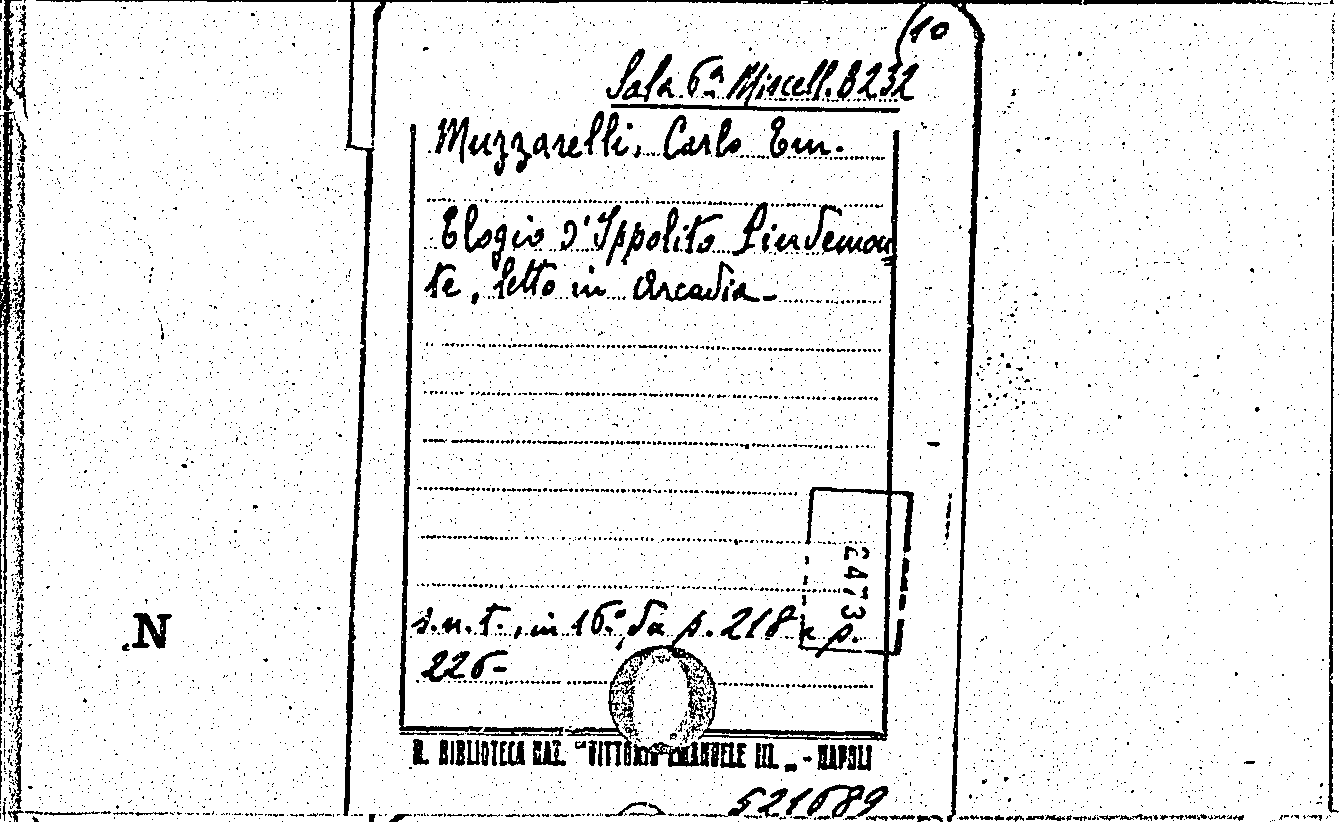 10
Sala 6ª Miscell. B232
Muzzarelli, Carlo Em.
Elogio d'Ippolito Pindemon
te, letto in Arcadia -
2473
s.n.t., in 16.º, da p. 218 a p.
226 -
N
R. BIBLIOTECA NAZ. "VITTORIO EMANUELE III. „ - NAPOLI
521689